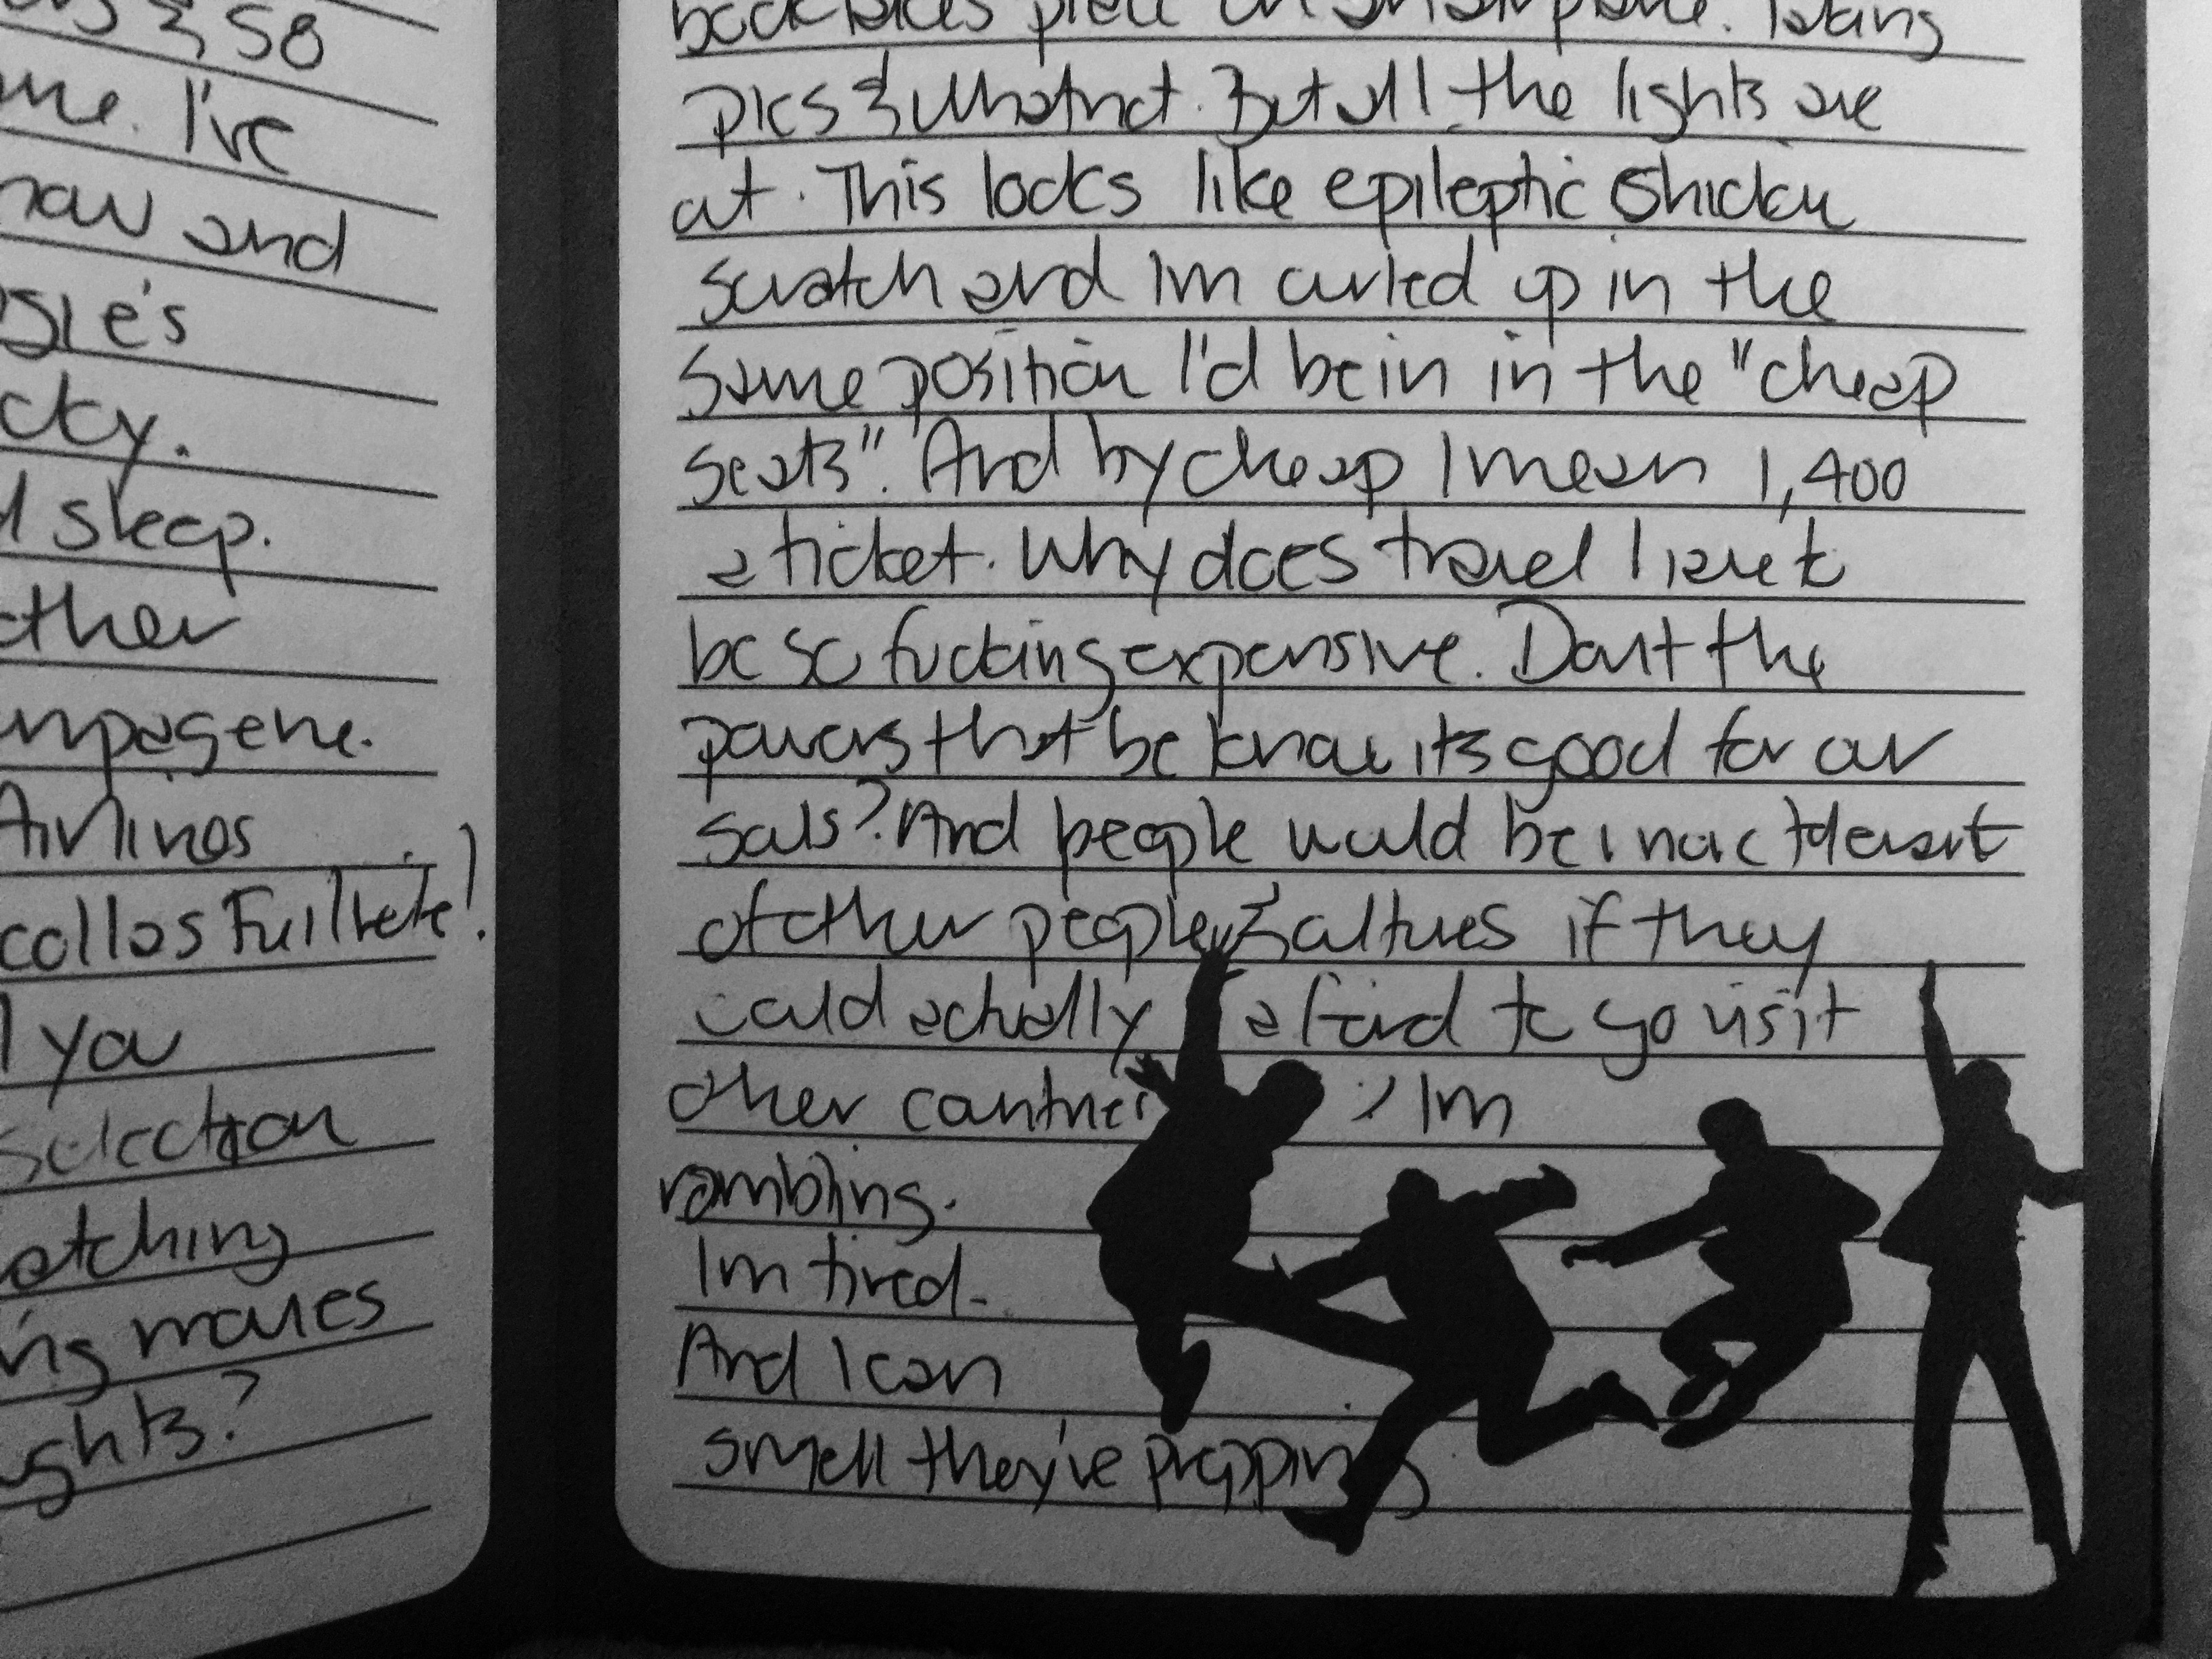 & 58
me. I've
now and
sie's
cky.
d sleep.
other
mpagene.
Airlines
collas Fuilltete!
l you
selection
atching
ing movies
ughts?
piece on an airplane. Taking
pics & whatnot. But all the lights are
out. This looks like epileptic chicken
scratch and Im curled up in the
same position I'd be in in the "cheap
seats". And by cheap I mean 1,400
a ticket. Why does travel have to
be so fucking expensive. Don't the
powers that be know its good for our
souls? And people would be more tolerant
of other people & cultures if they
could actually afford to go visit
other countries Im
rambling.
Im tired.
And I can
smell they're prepping